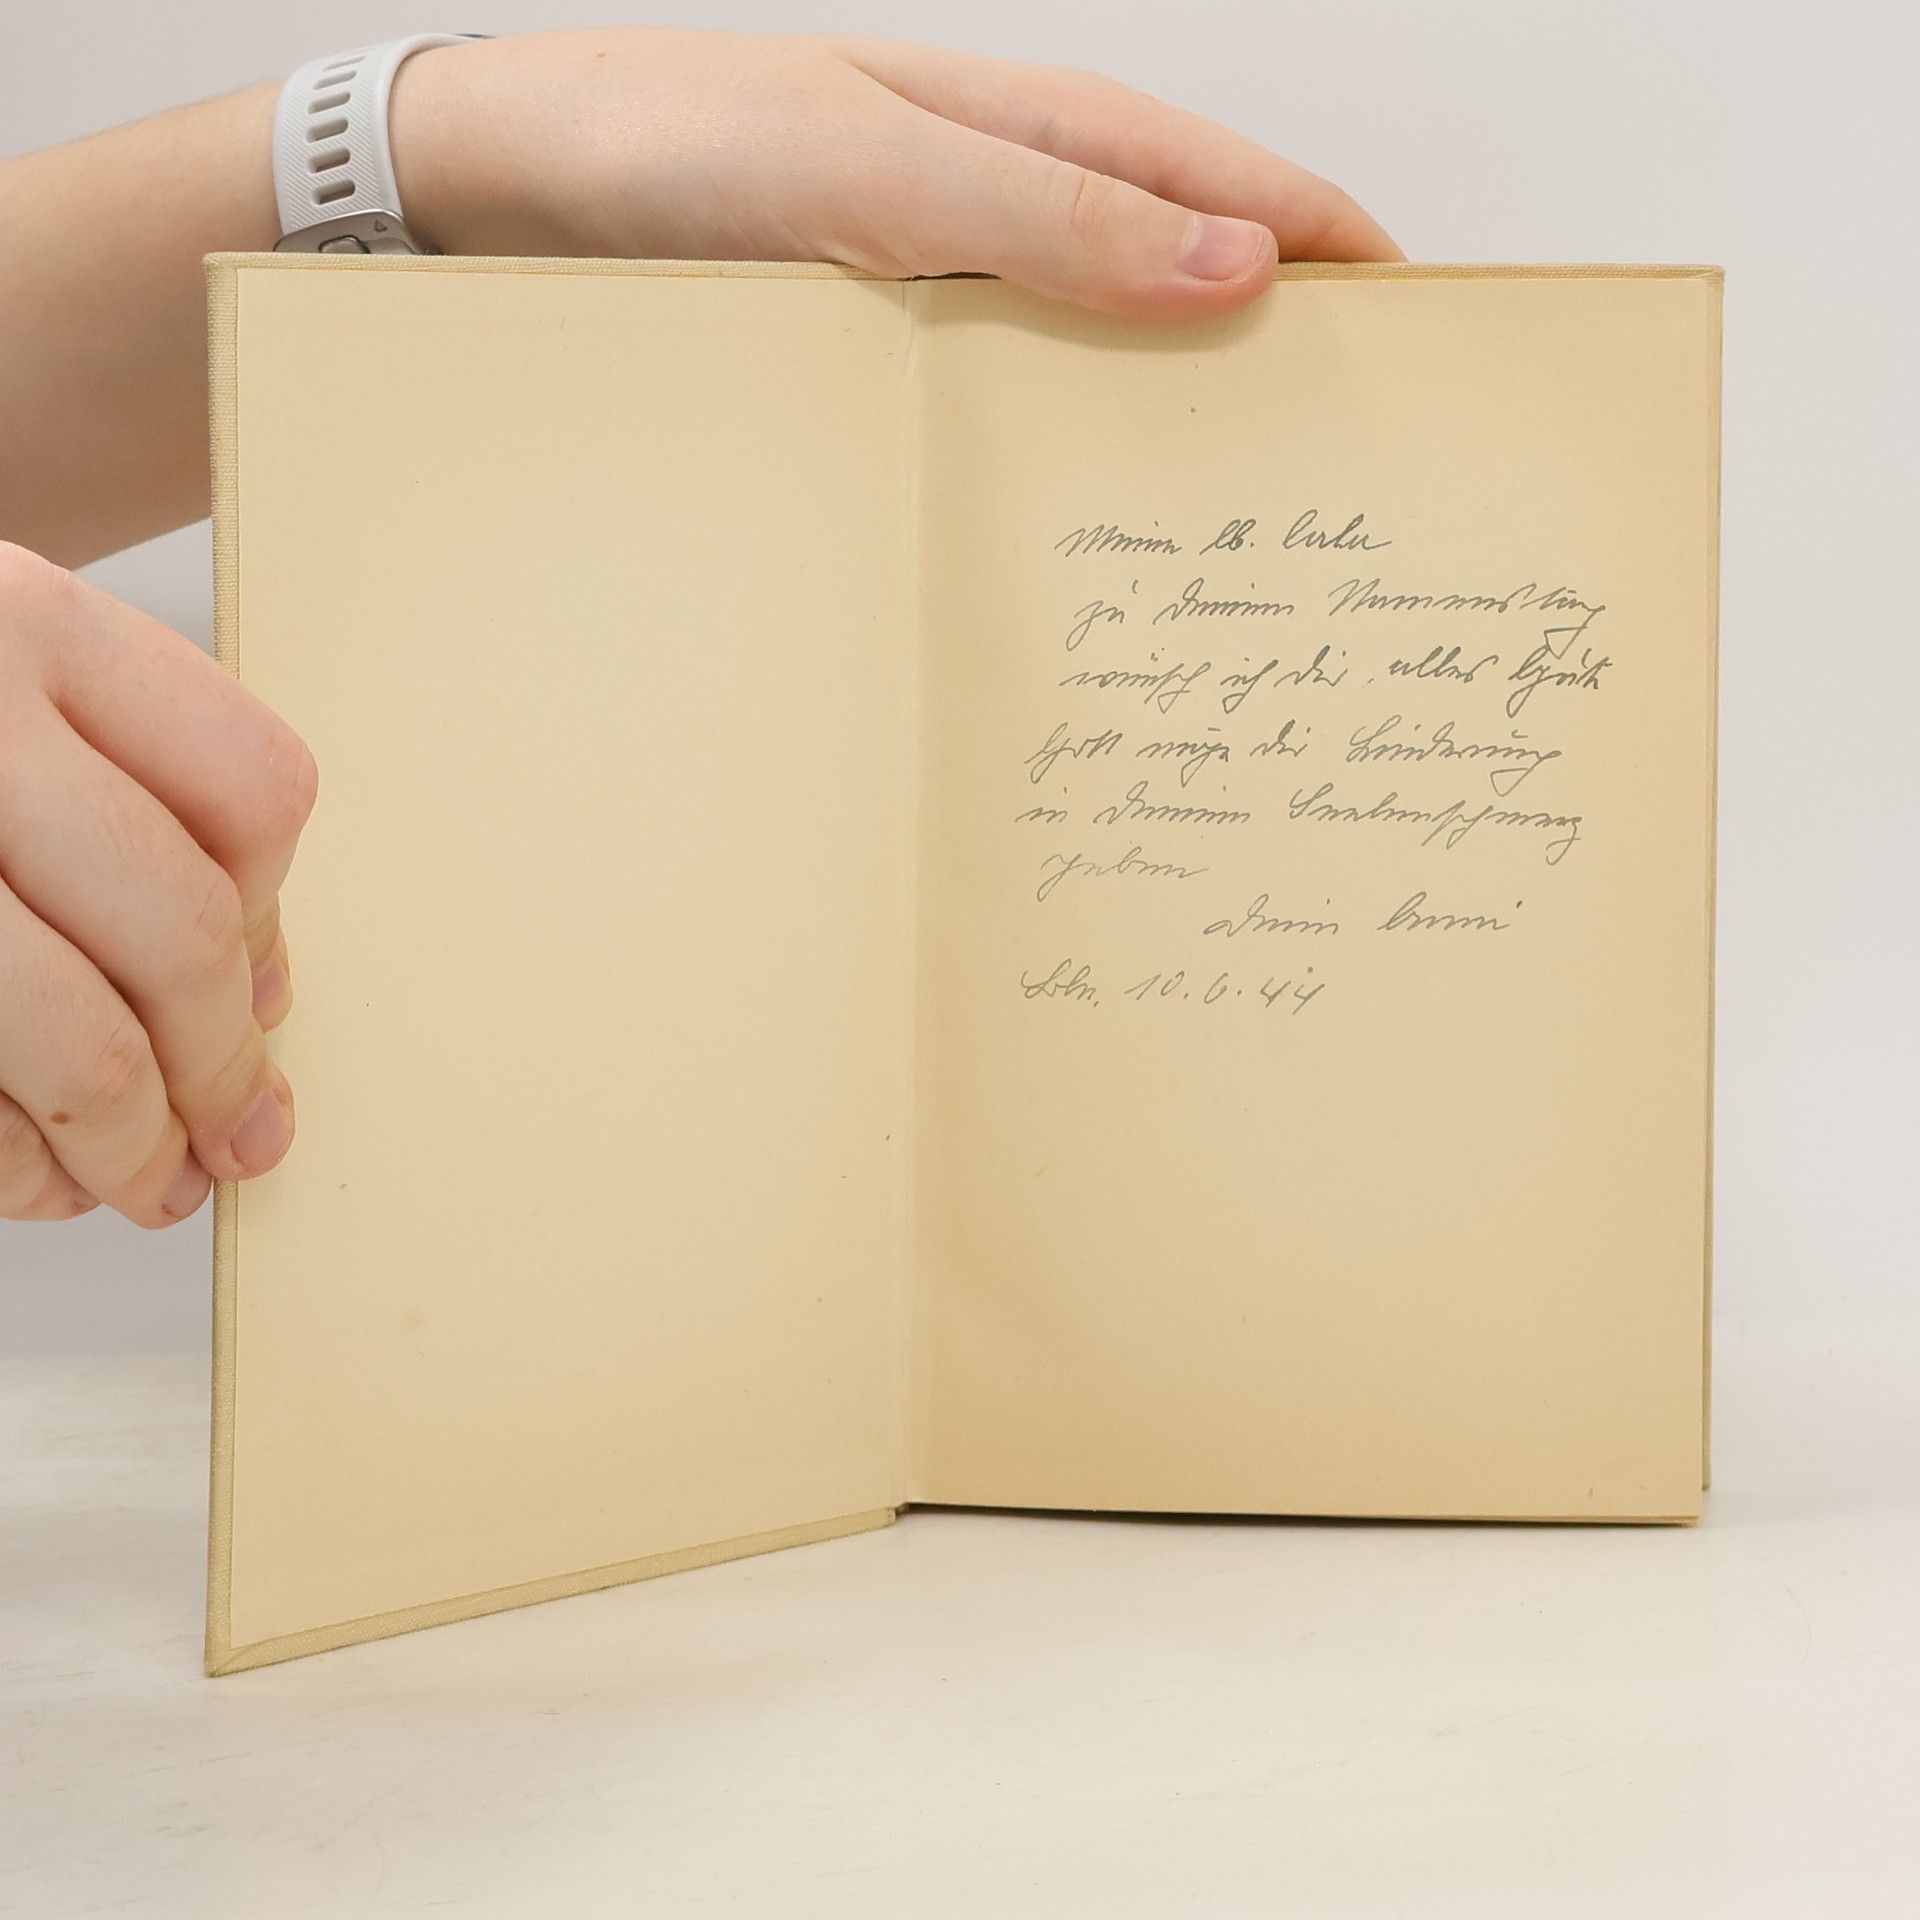 Meine lb.
zu Deinem Namenstag
wünsch ich Dir alles Gute
Gott möge Dir Linderung
in Deinem Seelenschmerz
geben
Deine
Bln. 10.6.44